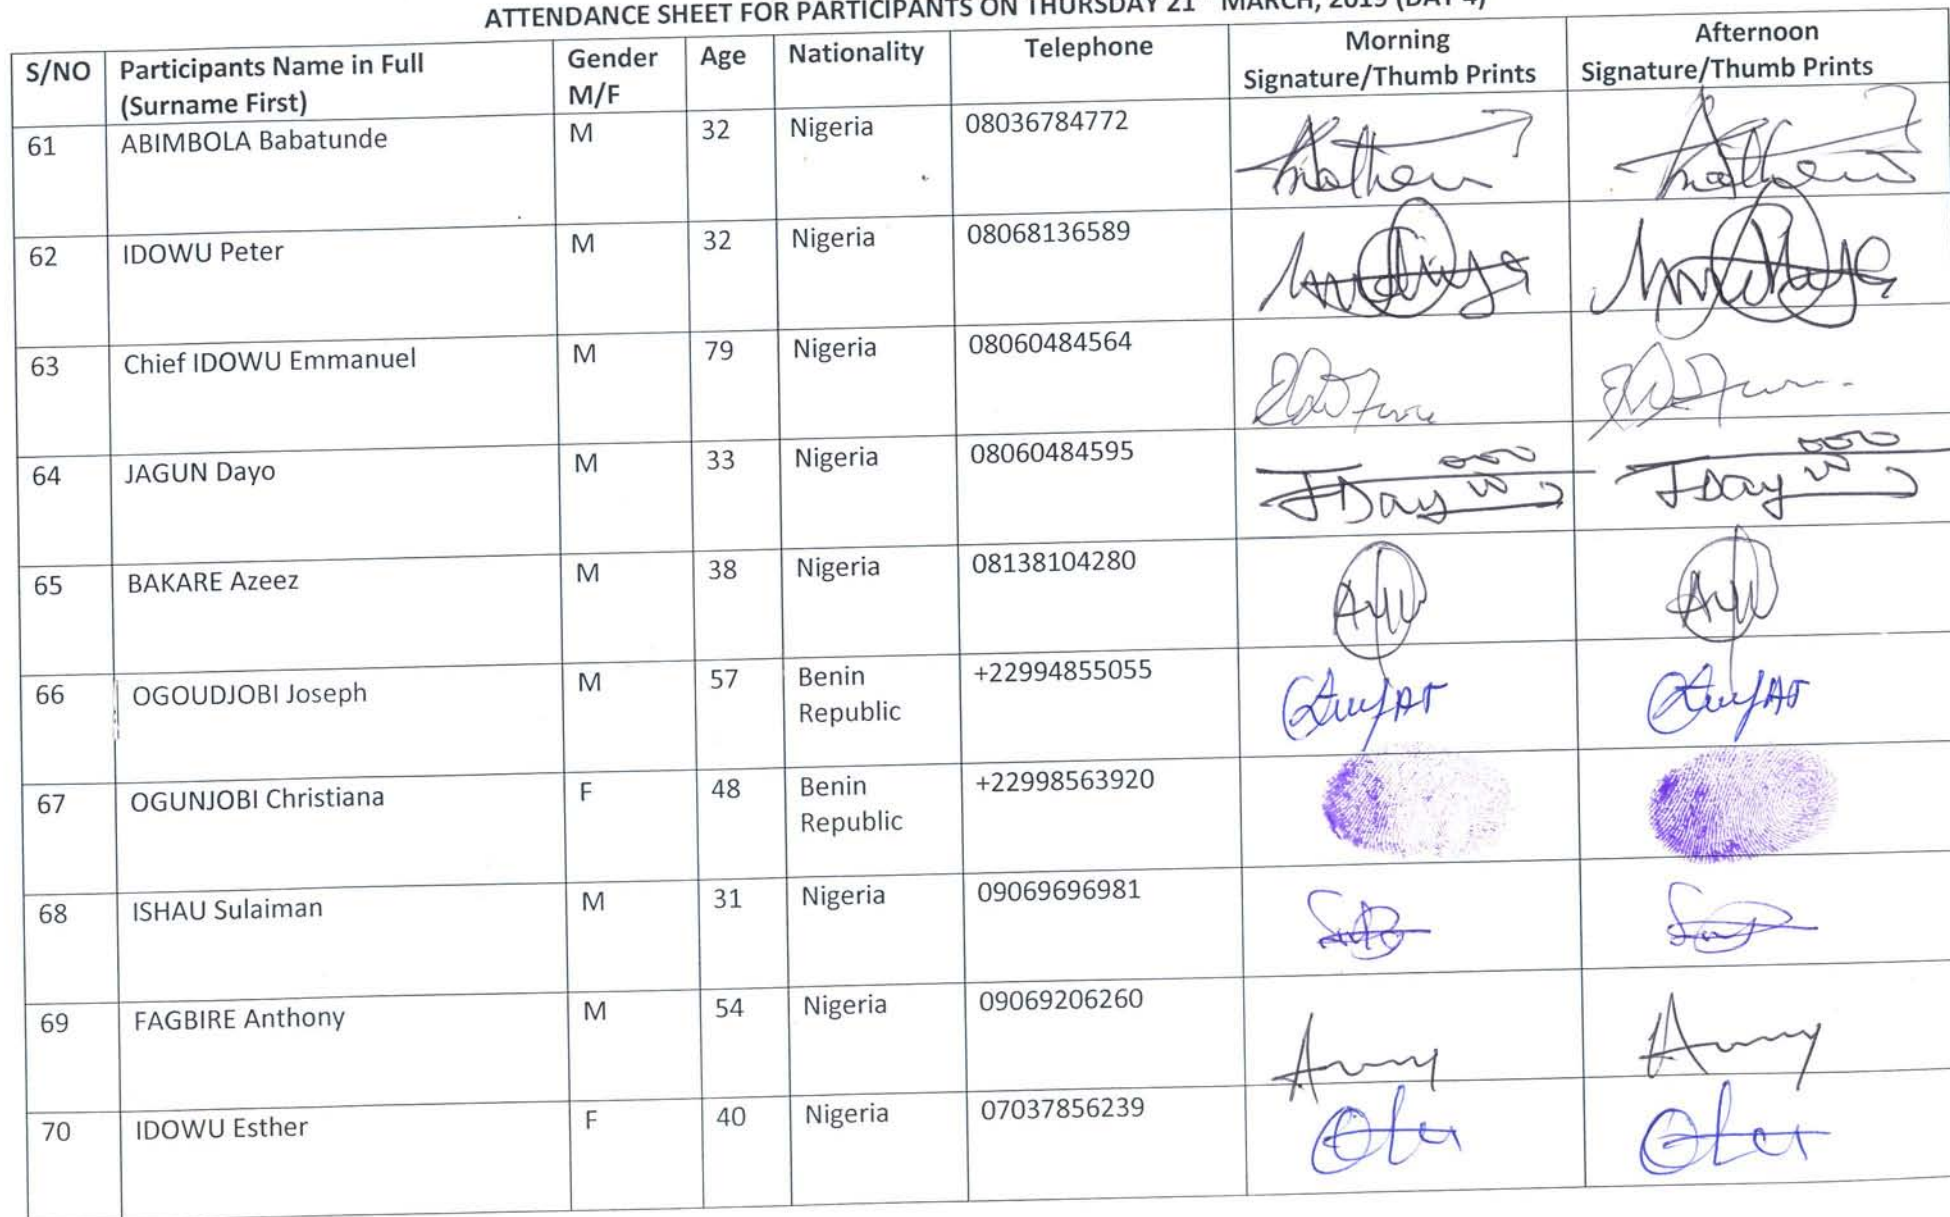 ATTENDANCE SHEET FOR PARTICIPANTS ON THURSDAY 21 MARCH, 2019 (DAY 4)
S/NO Participants Name in Full (Surname First) Gender M/F Age Nationality Telephone Morning Signature/Thumb Prints Afternoon Signature/Thumb Prints
61 ABIMBOLA Babatunde M 32 Nigeria 08036784772
62 IDOWU Peter M 32 Nigeria 08068136589
63 Chief IDOWU Emmanuel M 79 Nigeria 08060484564
64 JAGUN Dayo M 33 Nigeria 08060484595 JDay JDay
65 BAKARE Azeez M 38 Nigeria 08138104280
66 OGOUDJOBI Joseph M 57 Benin Republic +22994855055
67 OGUNJOBI Christiana F 48 Benin Republic +22998563920
68 ISHAU Sulaiman M 31 Nigeria 09069696981
69 FAGBIRE Anthony M 54 Nigeria 09069206260
70 IDOWU Esther F 40 Nigeria 07037856239